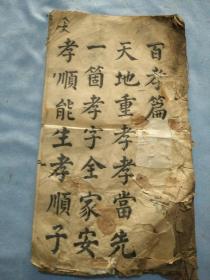 百孝篇
天地重孝孝當先
一箇孝字全家安
孝順能生孝順子